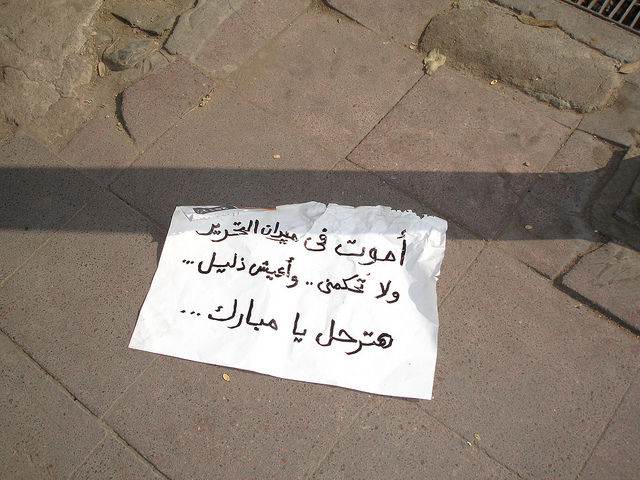 أموت فى ميدان التحرير
ولا تحكمنى .. وأعيش ذليل ...
هترحل يا مبارك ...